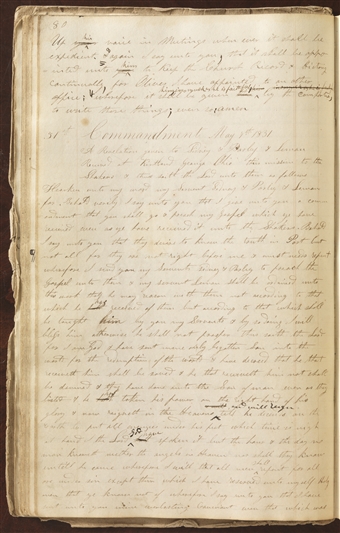 80
Up voice in Meetings when ever it shall be
expedient & again I say unto you that it shall be appo
inted unto to keep the Church Record & History
continually for Oliver I have appointed to an other
office wherefore shall be given by the comforter
to write these things even so amen
51st Commandment May 7th 1831
A Revelation given to Sidney & Parley & Leman
Received at Kirtland geauga Ohio
Shakers & thus saith the Lord unto them as follows
Hearken unto my word my servant Sidney & Parley & Leman
for behold verily I say unto you that I give unto you a comm
andment that you shall go & preach my gospel which ye have
received even as ye have received it unto the Shakers Behold
I say unto you that they desire to know the truth in Part but
not all for they are not right before me & must needs repent
wherefore I send you my servants Sidney & Parley to preach the
Gospel unto them & my servent Leman shall be ordained unto
this work that he may reason with them not according to
which he has received of them but according to that which shall
be taught him by you my Servants & by so doing I will
bless him otherwise he shall not prosper thus saith the Lord
for I am God & have sent mine only begotten Son into the
world for the redemption of the world & have decreed that he that
receiveth him shall be saved & he that receiveth him not shall
be damned & they have done unto the Son of man even as they
listed & he has taken his power on the right hand of his
glory & now reigneth in the Heavens & will reign till he descends on the
earth to put all enemies under his feet which time is nigh
at hand I the Lord God have spoken it but the hour & the day no
man knoweth neither the angels in heaven nor shall they know
untill he cometh wherefore I will that all men shall repent for all
are under sin except them which I have reserved unto myself holy
men that ye know not of wherefore I say unto you that I have
sent unto you mine everlasting covenant even that which was